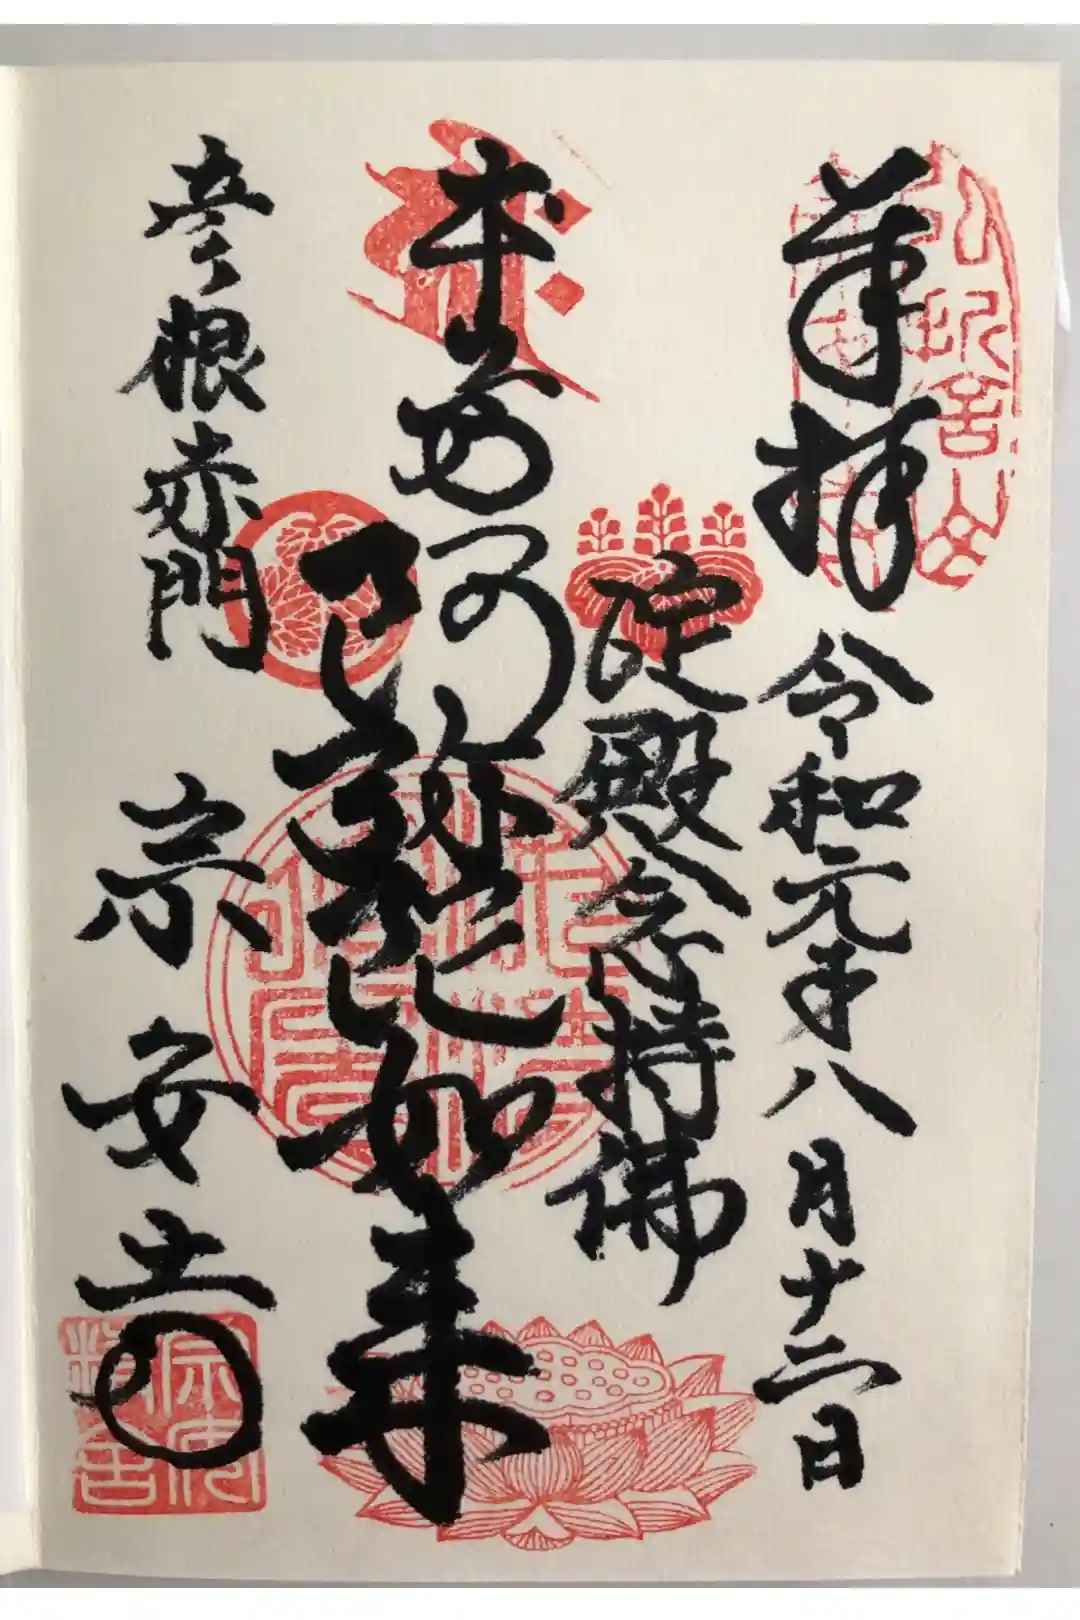 奉拝 令和元年八月十二日
淀殿念持佛
本尊
阿弥陀如来
彦根赤門 宗安寺